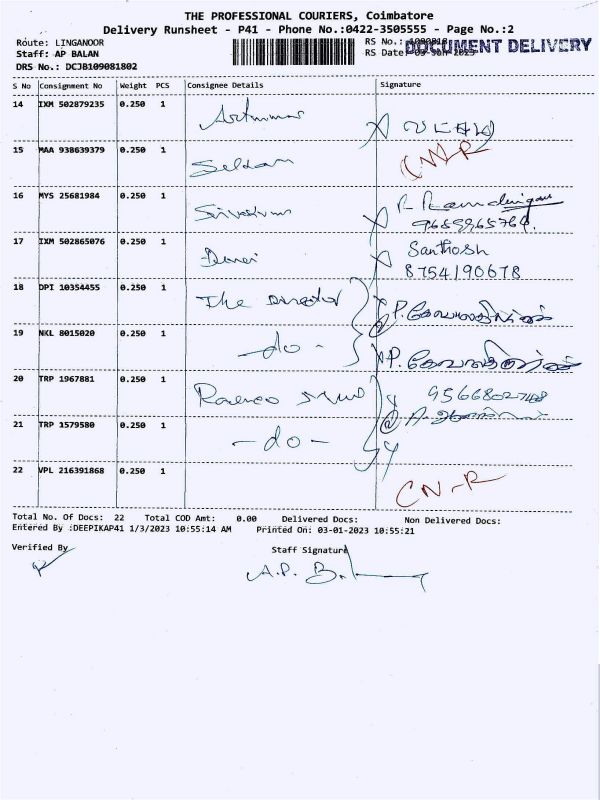 THE PROFESSIONAL COURIERS, Coimbatore
Delivery Runsheet - P41 - Phone No.:0422-3505555 - Page No.:2
Route: LINGANOOR
Staff: AP BALAN
DRS No.: DCJB109081802
RS No.:
RS Date: 03-Jan-2023
DOCUMENT DELIVERY
S No Consignment No Weight PCS Consignee Details Signature
14 IXM 502879235 0.250 1
15 MAA 938639379 0.250 1 CN-R
16 MYS 25681984 0.250 1
17 IXM 502865076 0.250 1 Santhosh
8754190678
18 DPI 10354455 0.250 1 The Director
19 NKL 8015020 0.250 1 -do-
20 TRP 1967881 0.250 1
21 TRP 1579580 0.250 1 -do-
22 VPL 216391868 0.250 1 CN-R
Total No. Of Docs: 22 Total COD Amt: 0.00 Delivered Docs: Non Delivered Docs:
Entered By :DEEPIKAP41 1/3/2023 10:55:14 AM Printed On: 03-01-2023 10:55:21
Verified By Staff Signature
A.P.